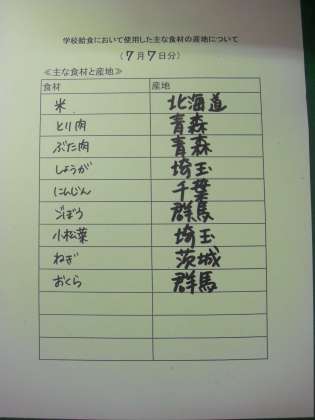 学校給食において使用した主な食材の産地について
(7月7日分)
≪主な食材と産地≫
食材 産地
米 北海道
とり肉 青森
ぶた肉 青森
しょうが 埼玉
にんじん 千葉
ごぼう 群馬
小松菜 埼玉
ねぎ 茨城
おくら 群馬